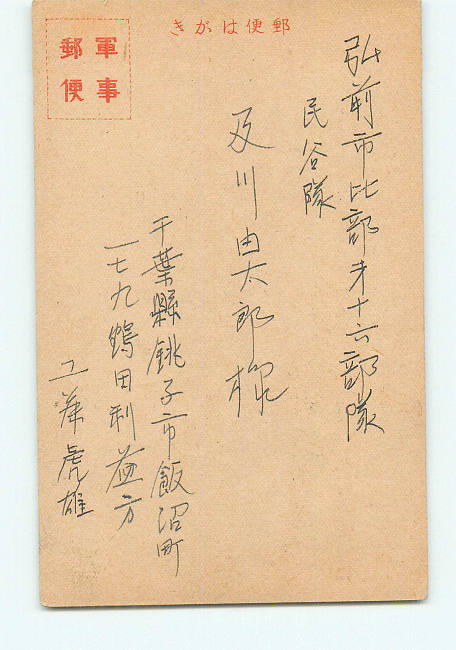 郵便はがき
軍事
郵便
弘前市比部才十六部隊
民谷隊
及川由太郎様
千葉縣銚子市飯沼町
一七九鶴田利益方
工藤虎雄